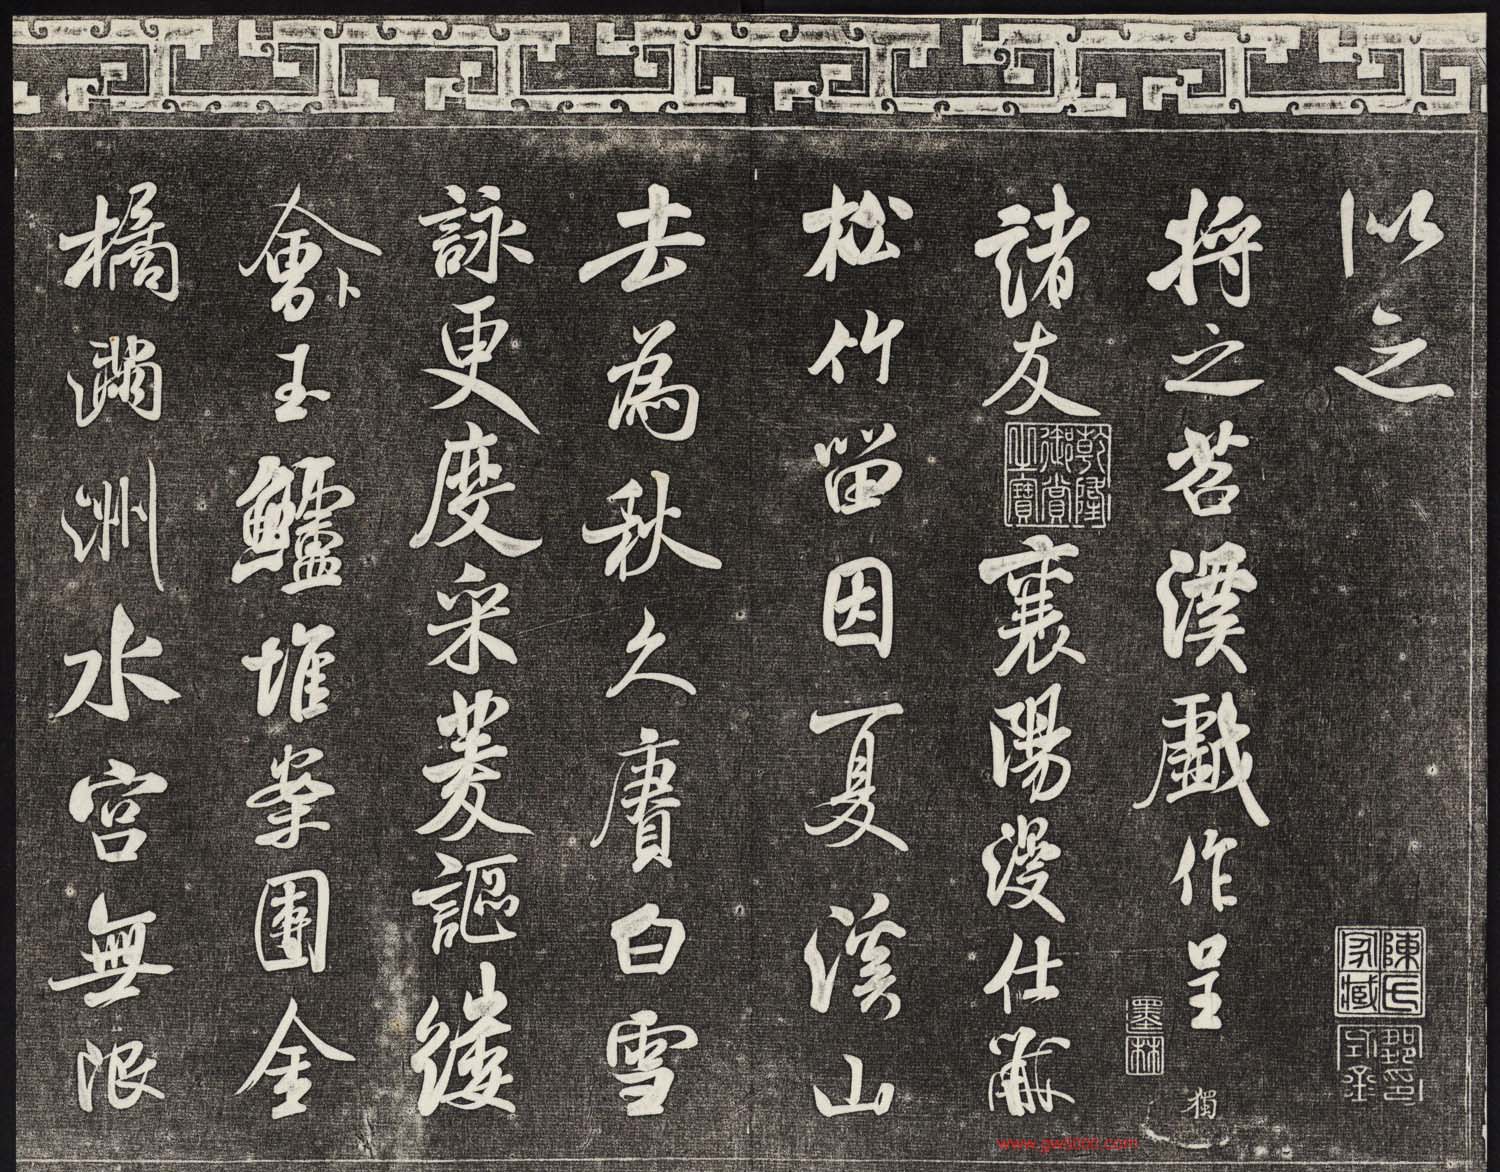 以之
陳氏家藏
將之苕溪戲作呈
墨林
獨
諸友
乾隆御賞之寶
襄陽漫仕黻
松竹留因夏溪山
去為秋久賡白雪
詠更度采菱謳縷
會卜玉鱸堆案團金
橘滿洲水宮無限